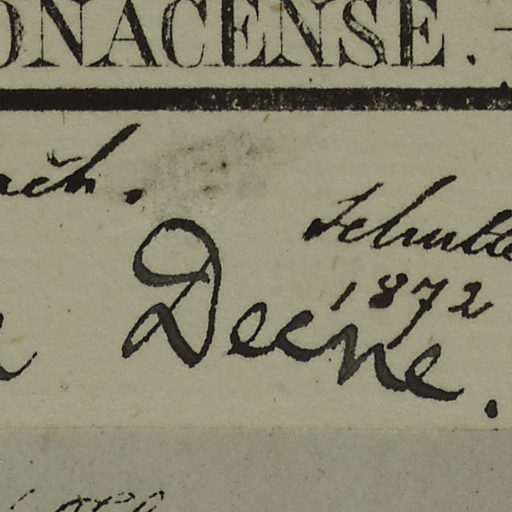 ONACENSE. -
ach. Schulte
1872
Decne.